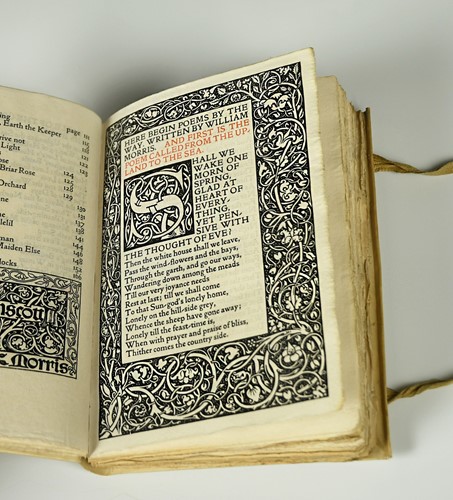 page iii
Earth the Keeper
115
rive not
121
Light
123
Briar Rose
124
Orchard
128
129
130
131
137
141
144
Maiden Else
148
152
locks
166
Morris
HERE BEGIN POEMS BY THE
WAY. WRITTEN BY WILLIAM
MORRIS. AND FIRST IS THE
POEM CALLED FROM THE UP-
LAND TO THE SEA.
SHALL WE
WAKE ONE
MORN OF
SPRING,
GLAD AT
HEART OF
EVERY-
THING,
YET PEN-
SIVE WITH
THE THOUGHT OF EVE?
Then the white house shall we leave,
Pass the wind-flowers and the bays,
Through the garth, and go our ways,
Wandering down among the meads
Till our very joyance needs
Rest at last; till we shall come
To that Sun-god's lonely home,
Lonely on the hill-side grey,
Whence the sheep have gone away;
Lonely till the feast-time is,
When with prayer and praise of bliss,
Thither comes the country side.